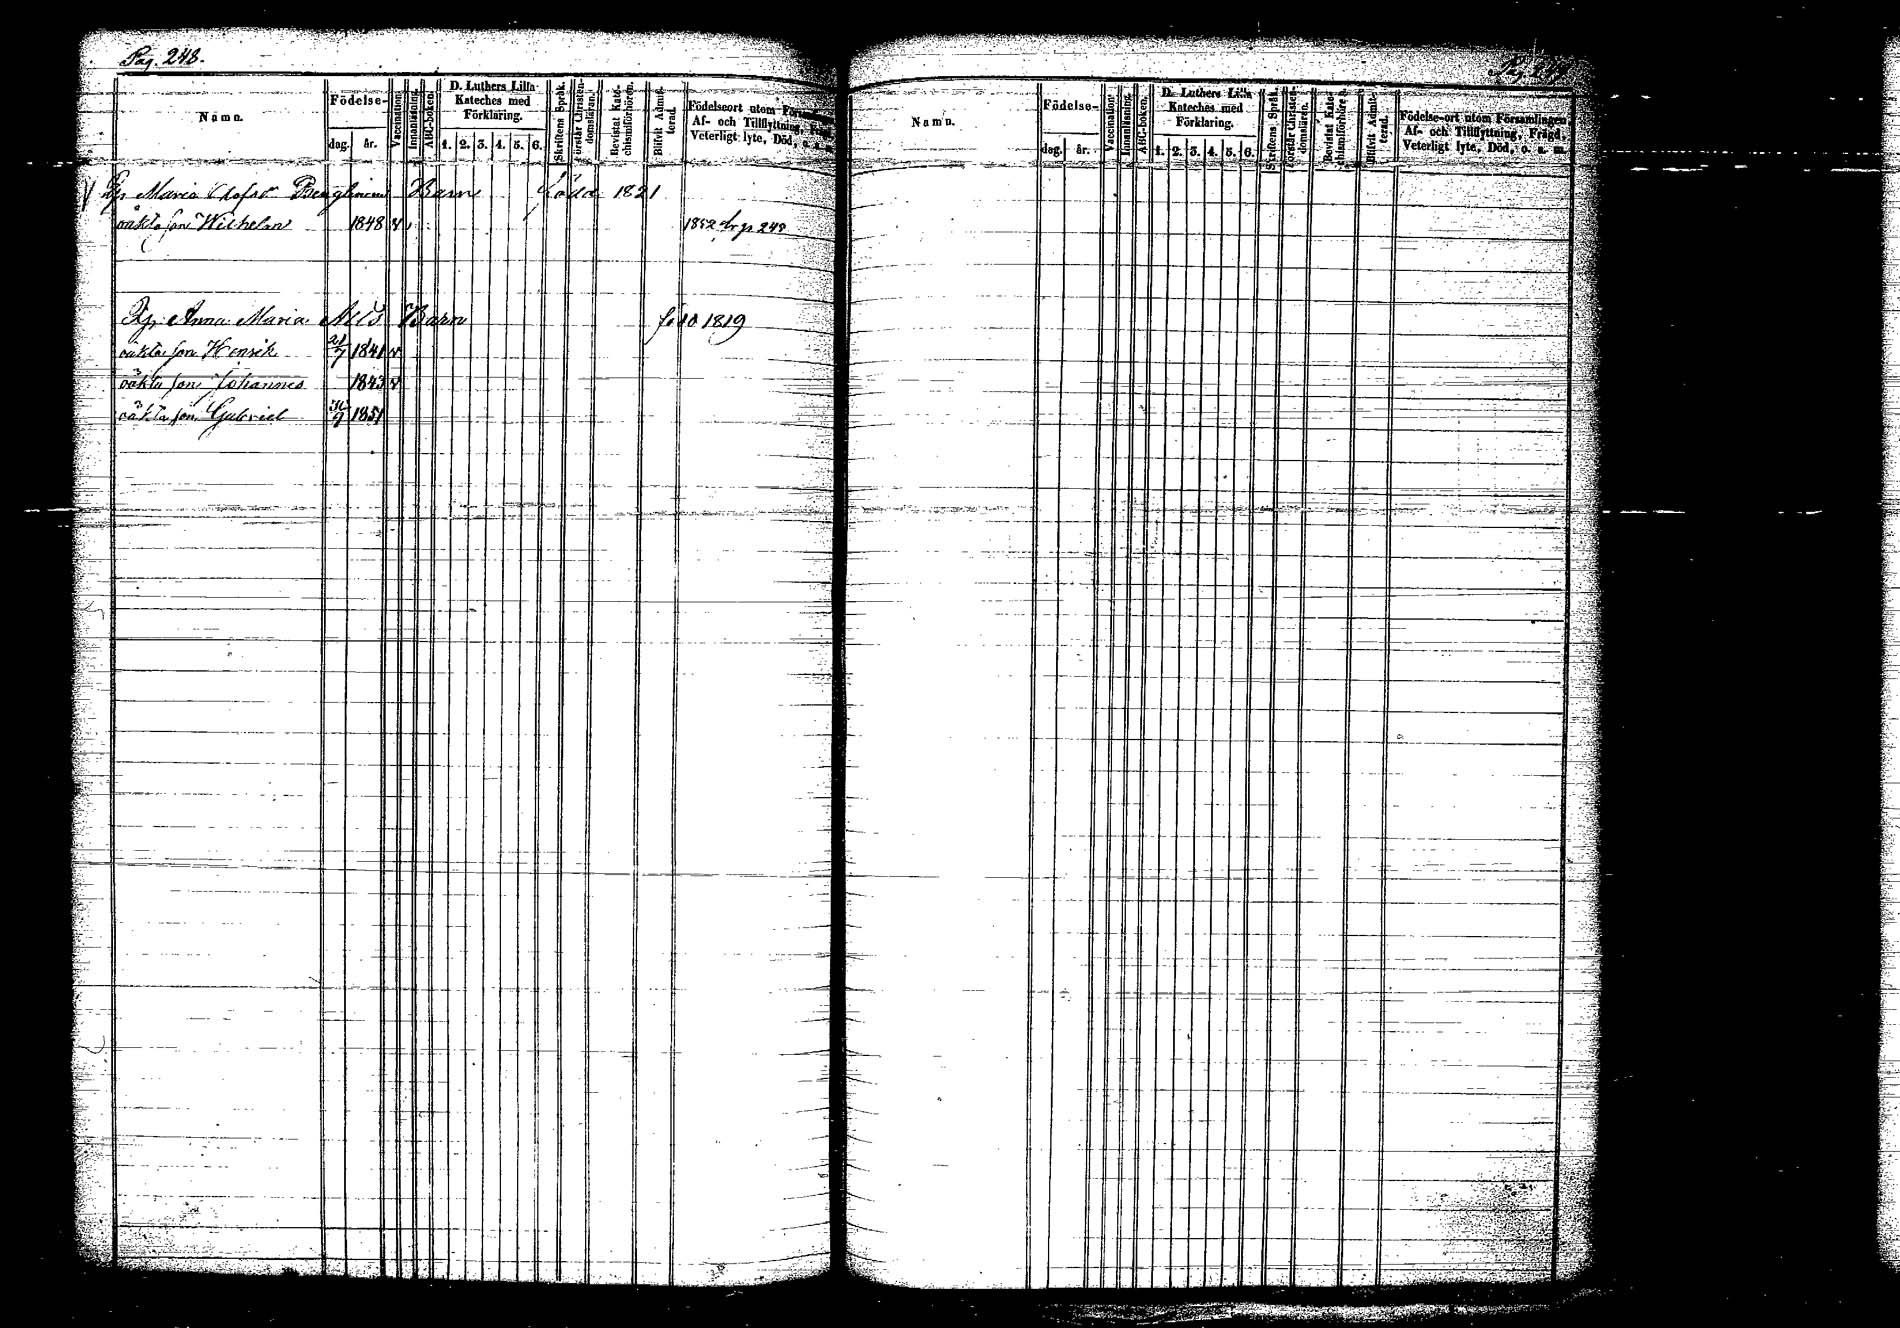 Pag. 248.
Namn.
Födelse-
dag. år.
Vaccination.
Innanläsning.
ABC-boken.
D. Luthers Lilla
Kateches med
Förklaring.
1. 2. 3. 4. 5. 6.
Skriftens Språk.
Förstår Christen-
domsläran.
Bevistat Kate-
chismiförhören.
Blifvit Admit-
terad.
Födelseort utom Församlingen,
Af- och Tillflyttning, Frägd,
Veterligt lyte, Död, o. a. m.
Maria Barn född 1821
oäkta son Wilhelm 1848 v 1852
Anna Maria Barn född 1819
oäkta son Henrik 21/7 1841 v
oäkta son Johannes 1843 v
oäkta son Gabriel 1851
Namn.
Födelse-
dag. år.
Vaccination.
Innanläsning.
ABC-boken.
D. Luthers Lilla
Kateches med
Förklaring.
1. 2. 3. 4. 5. 6.
Skriftens Språk.
Förstår Christen-
domsläran.
Bevistat Kate-
chismiförhören.
Blifvit Admit-
terad.
Födelse-ort utom Församlingen,
Af- och Tillflyttning, Frägd,
Veterligt lyte, Död, o. a. m.